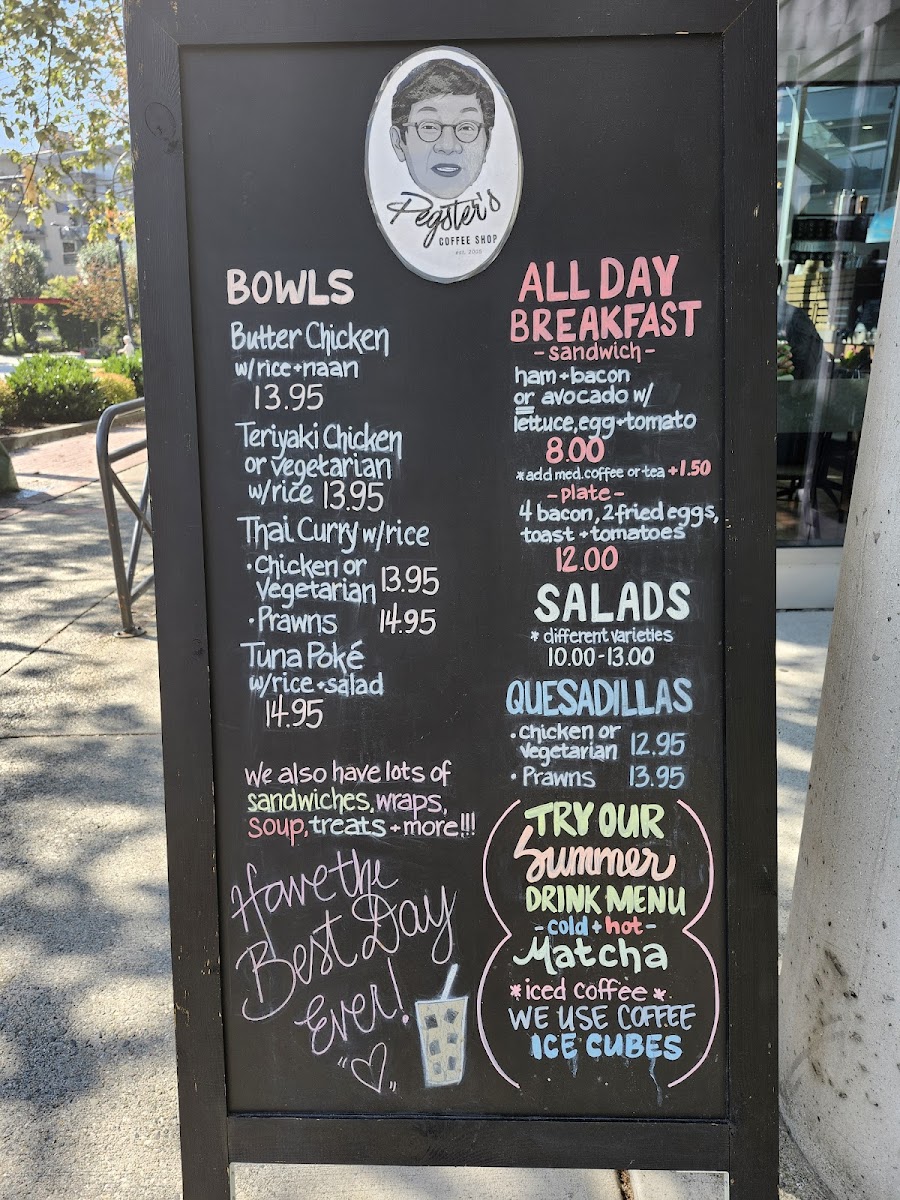 Pegster's
COFFEE SHOP
BOWLS
Butter Chicken
w/rice+naan
13.95
Teriyaki Chicken
or vegetarian
w/rice 13.95
Thai Curry w/rice
• Chicken or
vegetarian 13.95
• Prawns 14.95
Tuna Poké
w/rice+salad
14.95
we also have lots of
sandwiches, wraps,
soup, treats + more!!!
Have the
Best Day
Ever!
ALL DAY
BREAKFAST
- sandwich -
ham+bacon
or avocado w/
lettuce, egg+tomato
8.00
* add med. coffee or tea +1.50
- plate -
4 bacon, 2 fried eggs,
toast + tomatoes
12.00
SALADS
* different varieties
10.00-13.00
QUESADILLAS
• chicken or
vegetarian 12.95
• Prawns 13.95
TRY OUR
Summer
DRINK MENU
- cold + hot -
Matcha
* iced coffee *
WE USE COFFEE
ICE CUBES